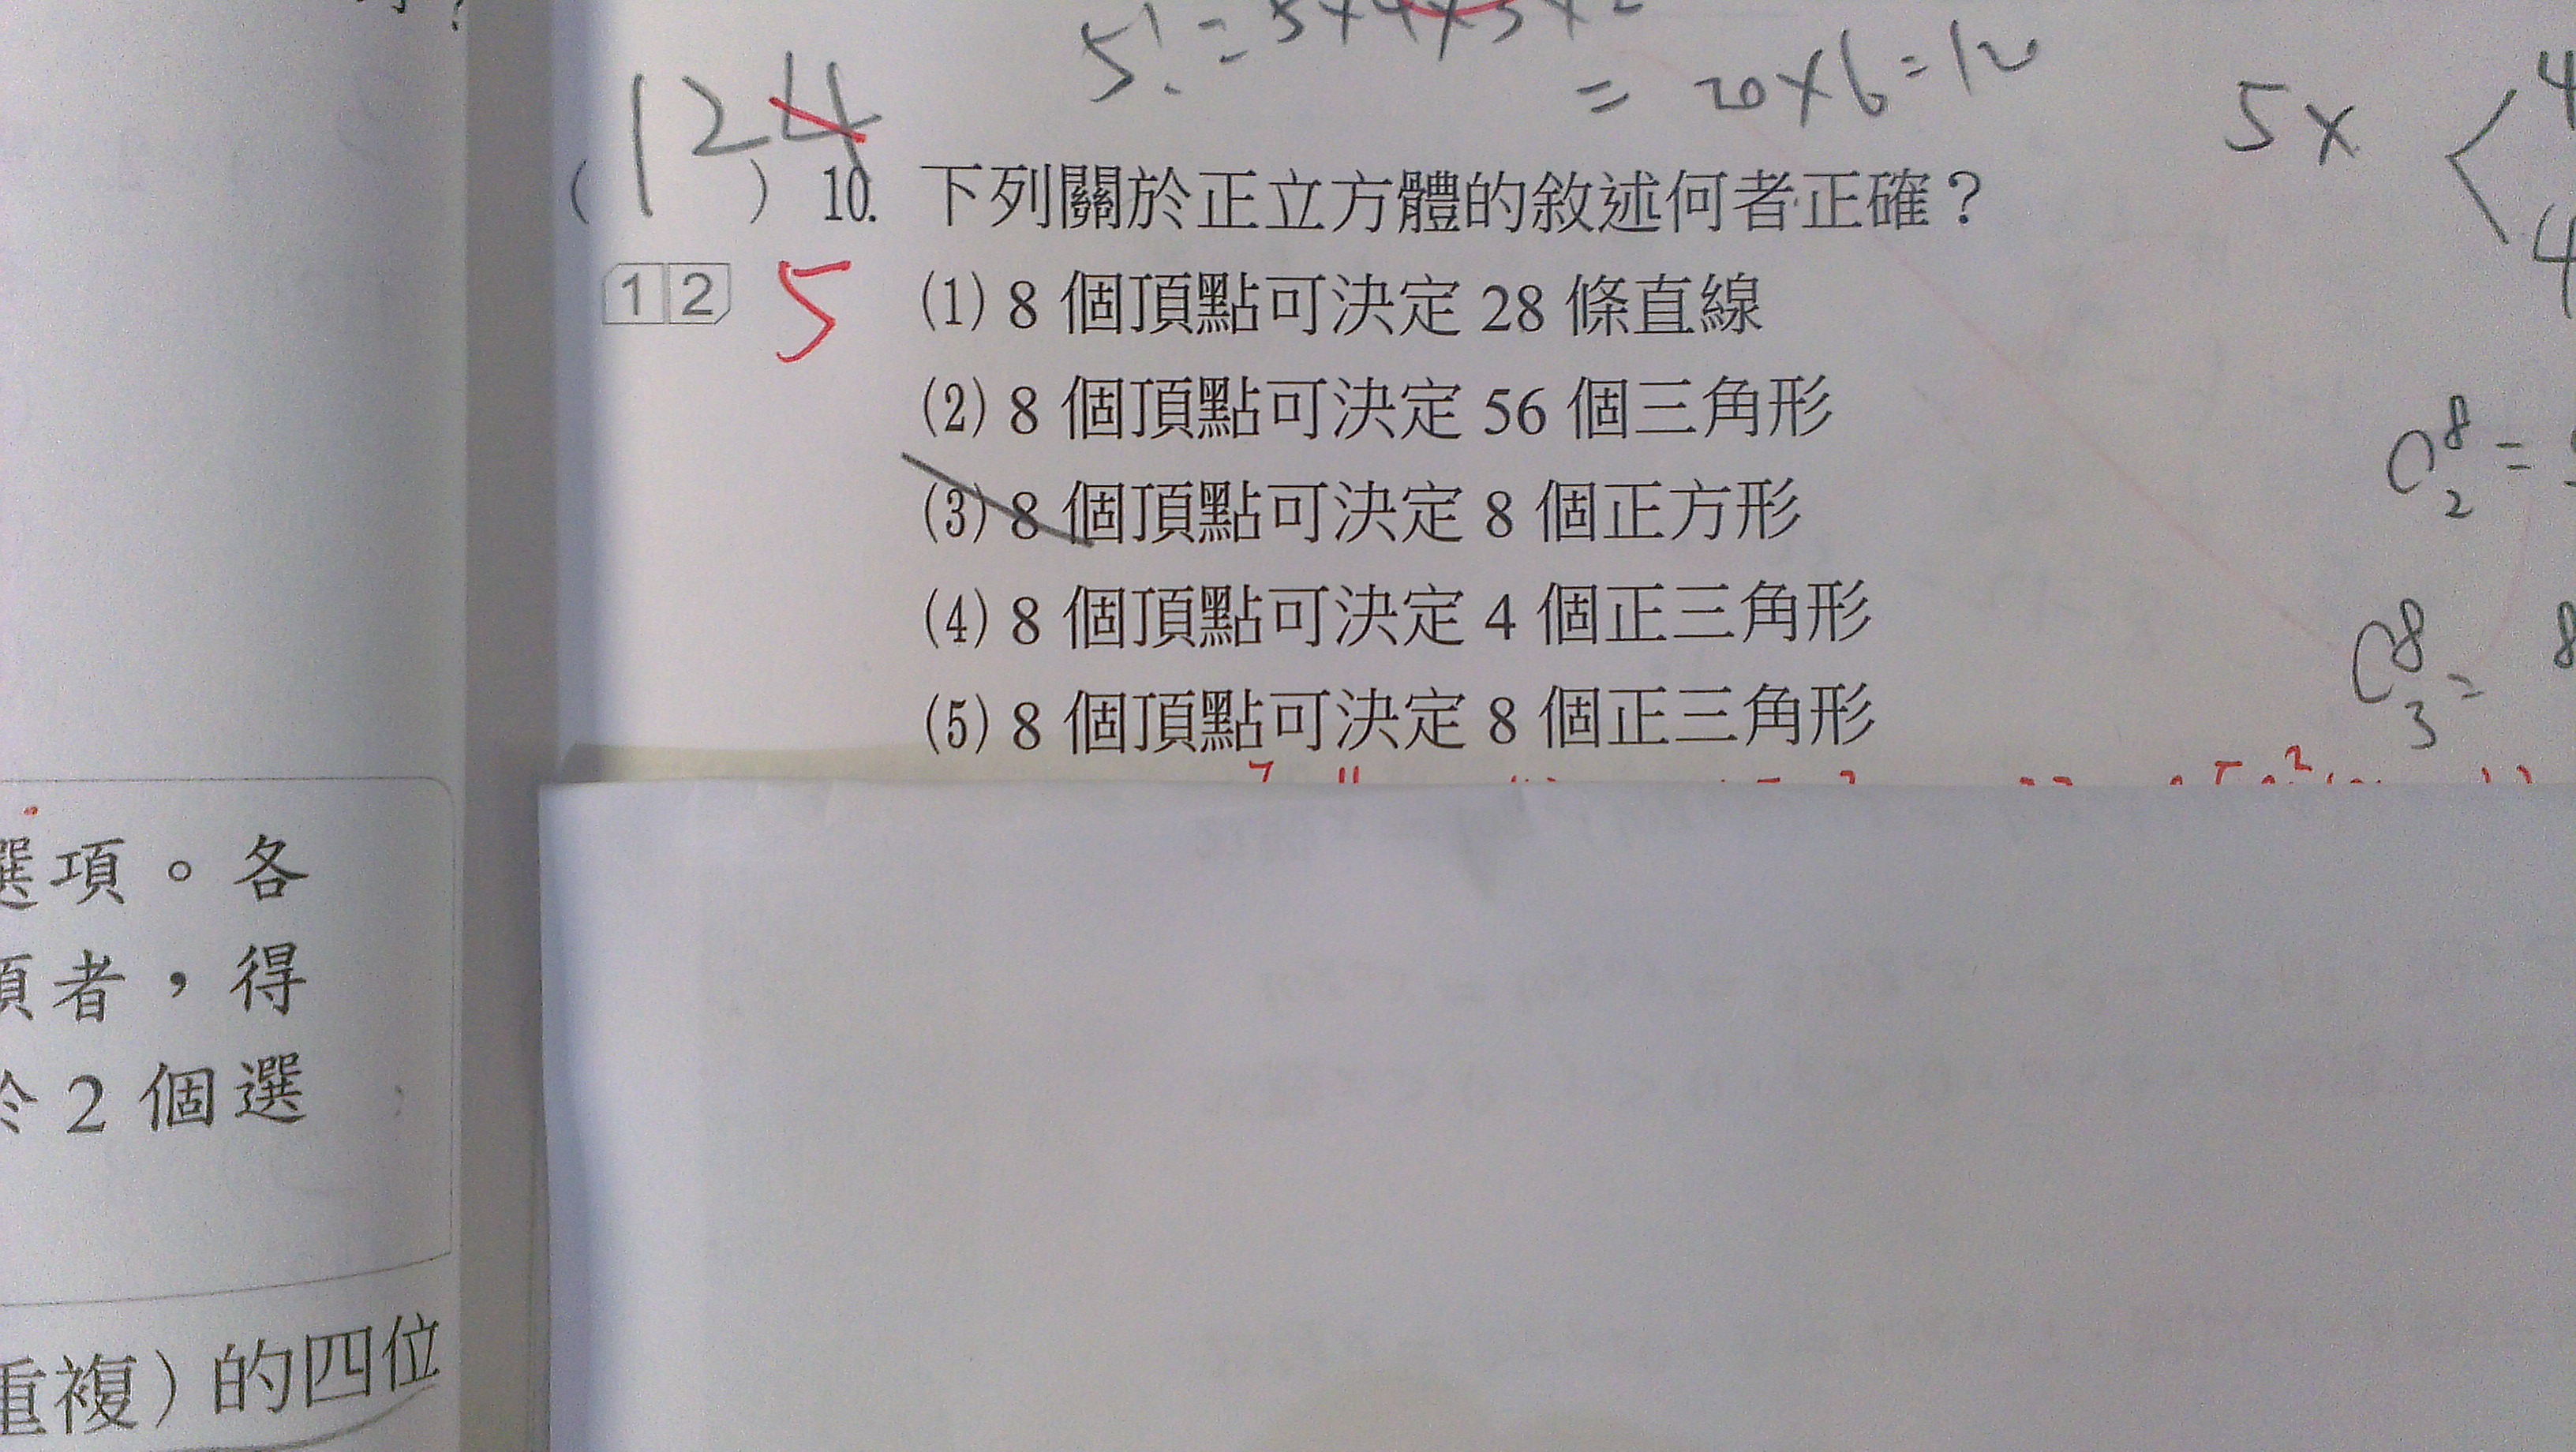 5! = 5×4×3×2
= 20×6=120
5×
4
4
124
( ) 10. 下列關於正立方體的敘述何者正確？
12 5
(1) 8 個頂點可決定 28 條直線
(2) 8 個頂點可決定 56 個三角形
(3) 8 個頂點可決定 8 個正方形
(4) 8 個頂點可決定 4 個正三角形
(5) 8 個頂點可決定 8 個正三角形
C⁸₂ =
C⁸₃ = 8
選項。各
項者，得
於 2 個選
重複）的四位